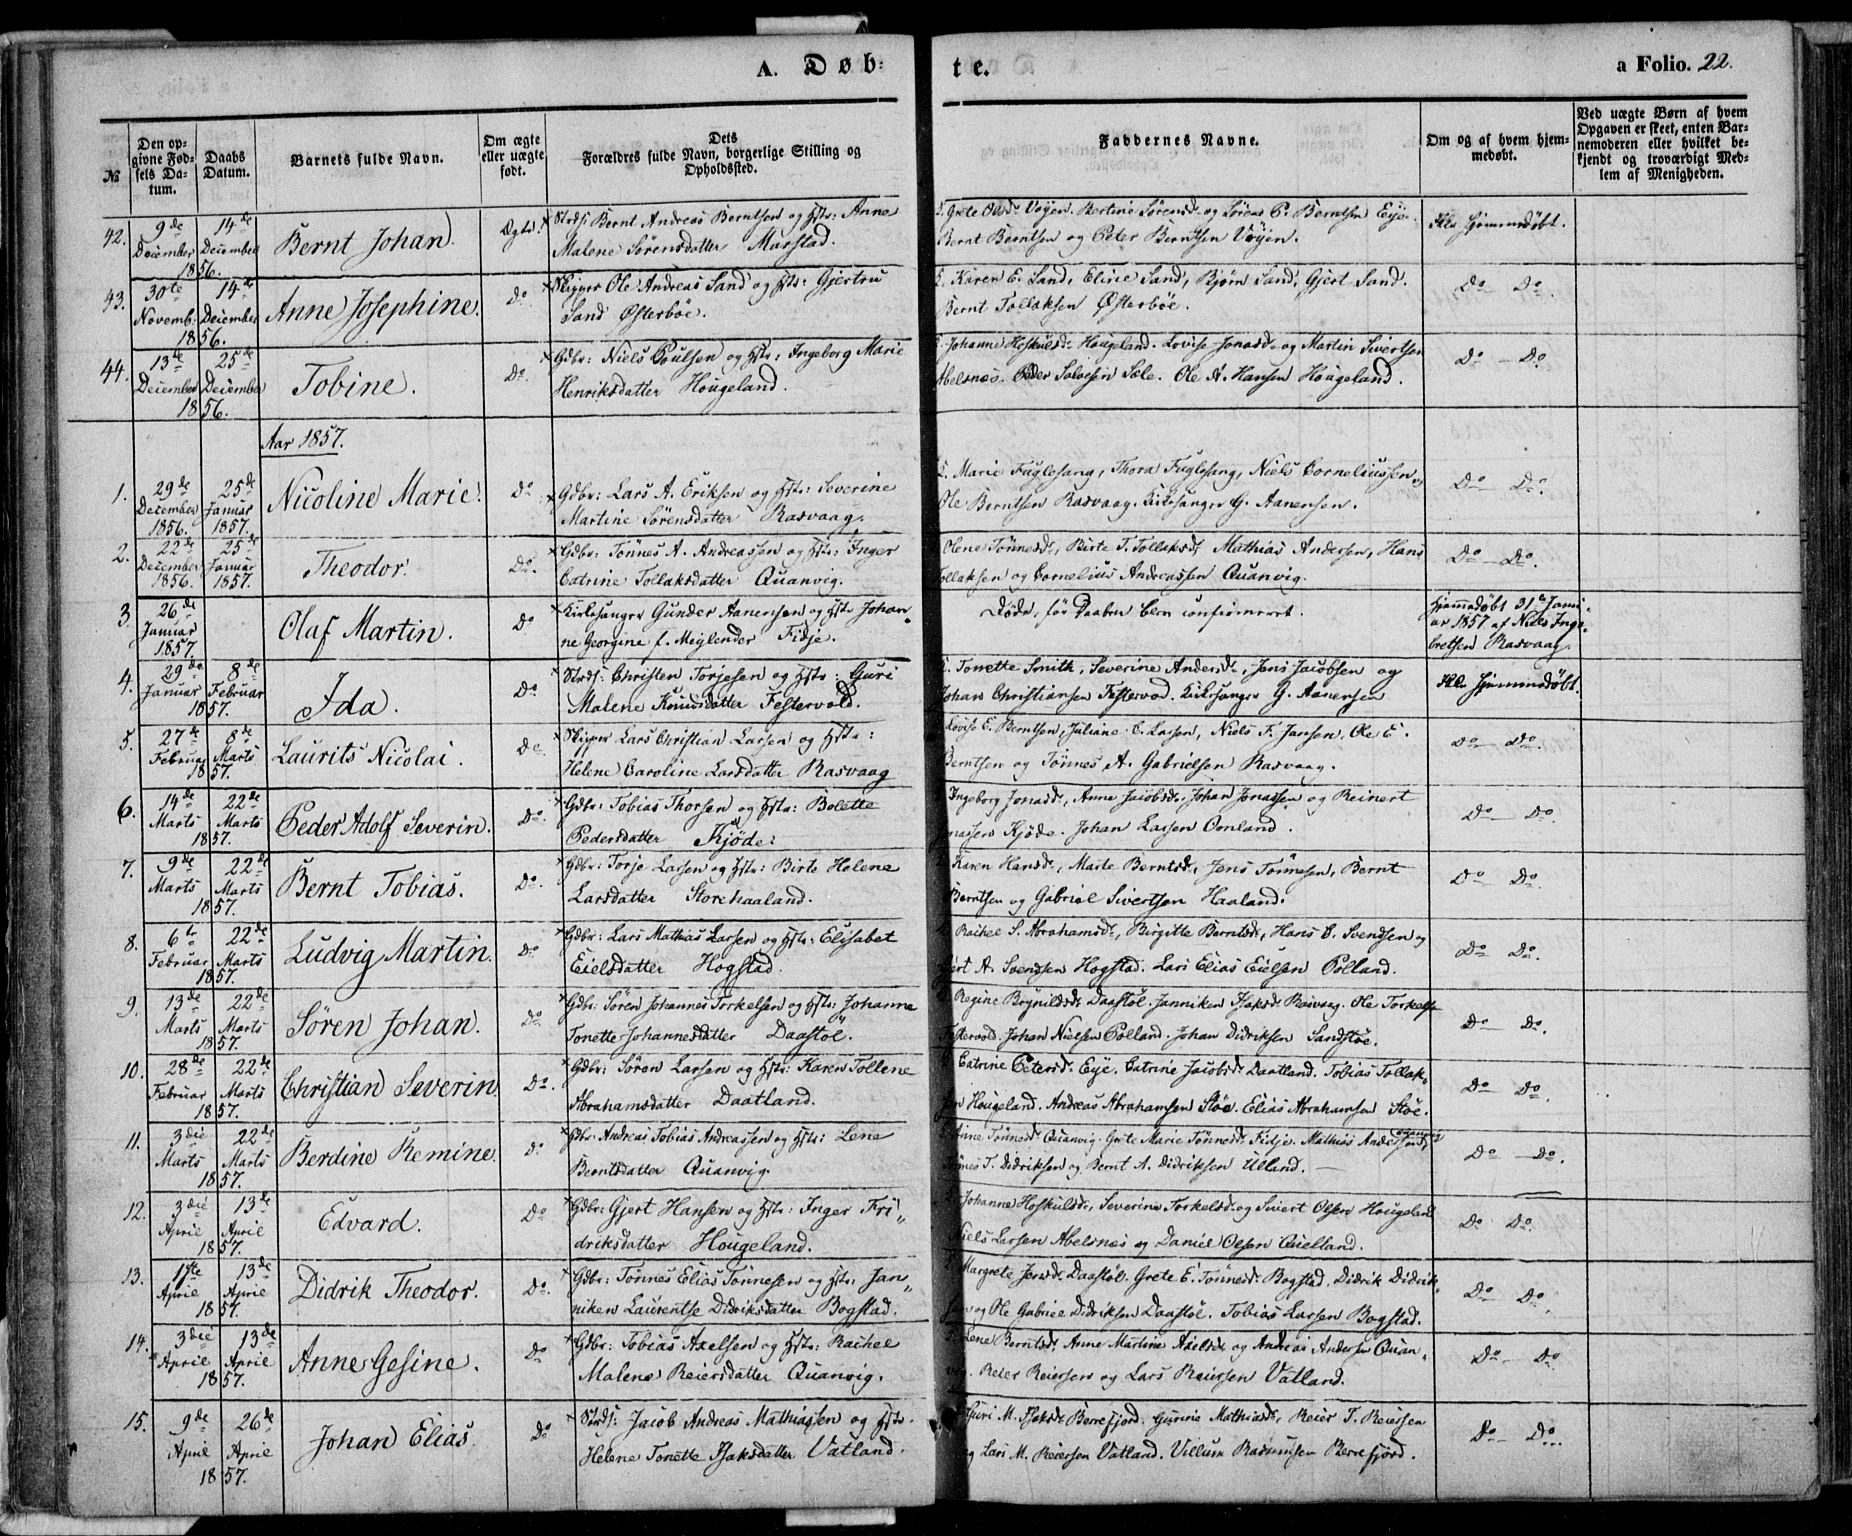 A. Døb=
te.
a Folio. 22.
№
Den op-
givne Fød-
sels Da-
tum.
Daabs
Datum.
Barnets fulde Navn.
Om ægte
eller uægte
født.
Dets
Forældres fulde Navn, borgerlige Stilling og
Opholdssted.
Faddernes Navne.
Om og af hvem hjem-
medøbt.
Ved uægte Børn af hvem
Opgaven er skeet, enten Bar-
nemoderen eller hvilket be-
kjendt og troværdigt Med-
lem af Menigheden.
42. 9de December 14de December 1856. Bernt Johan. Ægte. Strds: Bernt Andreas Berntsen og Hstr: Anne
Malene Sørensdatter Marstad.
Grete Olsd. Vøyen. Bertine Sørensd. og Sørens P. Berntsen Eye.
Bernt Berntsen og Peter Berntsen Vøyen.
Ikke hjemmedøbt.
43. 30te Novemb. 14de December 1856. Anne Josephine. Do Skipper Ole Andreas Sand og Hstr: Gjertru
Sand Østerbøe.
Karen E. Sand, Elisie Sand, Bjørn Sand, Gjert Sand.
Bernt Tollaksen Østerbøe.
Do Do.
44. 13de December 25de December 1856. Tobine. Do. Gdbr: Niels Poulsen og Hstr: Ingeborg Marie
Henriksdatter Hougeland.
Johanne Hoskulsd. Hougeland. Lovise Jonasd. og Martin Sivertsen
Abelsnæs. Peder Salvesen Sæle. Ole A. Hansen Hougeland.
Do - Do.
Aar 1857.
1. 29de December 1856. 25de Januar 1857. Nicoline Marie. Do Gdbr: Lars A. Eriksen og Hstr: Severine
Martine Sørensdatter Rasvaag.
Marie Fuglesang, Thora Fuglesang, Niels Corneliussen og
Ole Berntsen Rasvaag. Kirkesanger G. Aanensen.
Do Do.
2. 22de December 1856. 25de Januar 1857. Theodor. Do. Gdbr: Tønnes A. Andreassen og Hstr: Inger
Catrine Tollaksdatter Quanvig.
Olene Tønnesd., Birte T. Tollaksd., Mathias Andersen, Hans
Tollaksen og Cornelius Andreassen Quanvig.
Do - Do.
3. 26de Januar 1857. Olaf Martin. Do Kirkesanger Gunder Aanensen og Hstr Johan-
ne Georgine f. Meylender Fidje.
Døde, før Daaben blev confirmeret.
Hjemmedøbt 31te Janu-
ar 1857 af Niels Inge-
bretsen Rasvaag.
4. 29de Januar 8de Februar 1857. Ida. Do. Strds: Christen Torjesen og Hstr: Guri
Malene Knudsdatter Festervold.
Tonette Smith, Severine Andersd., Jens Jacobsen og
Johan Christiansen Festervod. Kirkesanger G. Aanensen
Ikke hjemmedøbt.
5. 27de Februar 8de Marts 1857. Laurits Nicolai. Do. Skipper Lars Christian Larsen og Hstr:
Helene Caroline Larsdatter Rasvaag
Lovise E. Berntsen, Juliane C. Larsen, Niels F. Jansen, Ole E.
Berntsen og Tønnes A. Gabrielsen Rasvaag.
Do - Do.
6. 14de Marts 22de Marts 1857. Peder Adolf Severin. Do. Gdbr: Tobias Thorsen og Hstr: Bolette
Pedersdatter Kjøde.
Ingeborg Jonasd., Anne Jacobsd. Johan Jonassen og Reinert
Jonassen Kjøde. Johan Larsen Omland.
Do Do.
7. 9de Marts 22de Marts 1857. Bernt Tobias. Do. Gdbr: Torje Larsen og Hstr: Birte Helene
Larsdatter Storehaaland.
Karen Hansd., Marte Berntsd., Jens Tønnesen, Bernt
Berntsen og Gabriel Sivertsen Haaland.
Do Do.
8. 6te Februar 22de Marts 1857. Ludvig Martin. Do Gdbr: Lars Mathias Larsen og Hstr: Elisabet
Eielsdatter Hogstad.
Rachel S. Abrahamsd., Birgitte Berntsd., Hans C. Svendsen og
A. Svendsen Hogstad. Lars Elias Eielsen Polland.
Do Do.
9. 13de Marts 22de Marts 1857. Søren Johan. Do Gdbr: Søren Johannes Torkelsen og Hstr: Johanne
Tonette Johannesdatter Daastøl.
Regine Brynildsd. Daastøl. Janniken Isaksd. Rasvaag. Ole Torkelsen
Festervod. Johan Nielsen Polland. Johan Didriksen Sandstøe.
Do Do.
10. 28de Februar 22de Marts 1857. Christian Severin. Do. Gdbr: Søren Larsen og Hstr: Karen Tollene
Abrahamsdatter Daatland.
Catrine Petersd. Eye. Catrine Jacobsd. Daatland. Tobias Tollak-
sen Hougeland. Andreas Abrahamsen Støe. Elias Abrahamsen Støe.
Do Do.
11. 3die Marts 22de Marts 1857. Berdine Remine. Do Gdbr: Andreas Tobias Andreassen og Hstr: Lene
Berntsdatter Quanvig.
Tønnesd. Quanvig. Grete Marie Tønnesd. Fidje. Mathias Andersen
Tønnes T. Didriksen og Bernt A. Didriksen Ulland.
Do - Do.
12. 3die April 13de April 1857. Edvard. Do Gdbr: Gjert Hansen og Hstr: Inger Fri-
driksdatter Hougeland.
Johanne Hoskulsd., Severine Torkelsd. og Sivert Olsen Hougeland
Niels Larsen Abelsnæs og Daniel Olsen Quelland.
Do Do.
13. 1ste April 13de April 1857. Didrik Theodor. Do. Gdbr: Tønnes Elias Tønnesen og Hstr: Jan-
niken Laurentse Didriksdatter Bogstad.
Margrete Jensd. Daastøl. Grete E. Tønnesd. Bogstad, Didrik Didrik-
sen og Ole Gabriel Didriksen Daastøl. Tobias Larsen Bogstad.
Do Do.
14. 3die April 13de April 1857. Anne Gesine. Do Gdbr: Tobias Axelsen og Hstr: Rachel
Malene Reiersdatter Quanvig.
Lene Berntsd. Anne Martine Axelsd. og Andreas Andersen Quan-
vig. Reier Reiersen og Lars Reiersen Vatland.
Do - Do
15. 9de April 26de April 1857. Johan Elias. Do Strds: Jacob Andreas Mathiassen og Hstr.
Helene Tonette Isaksdatter Vatland.
Guri M. Isaksd. Berrefjord. Gunine Mathiasd., Reier T. Reiersen
og Lars M. Reiersen Vatland. Villum Rasmussen Berrefjord.
Do - Do.